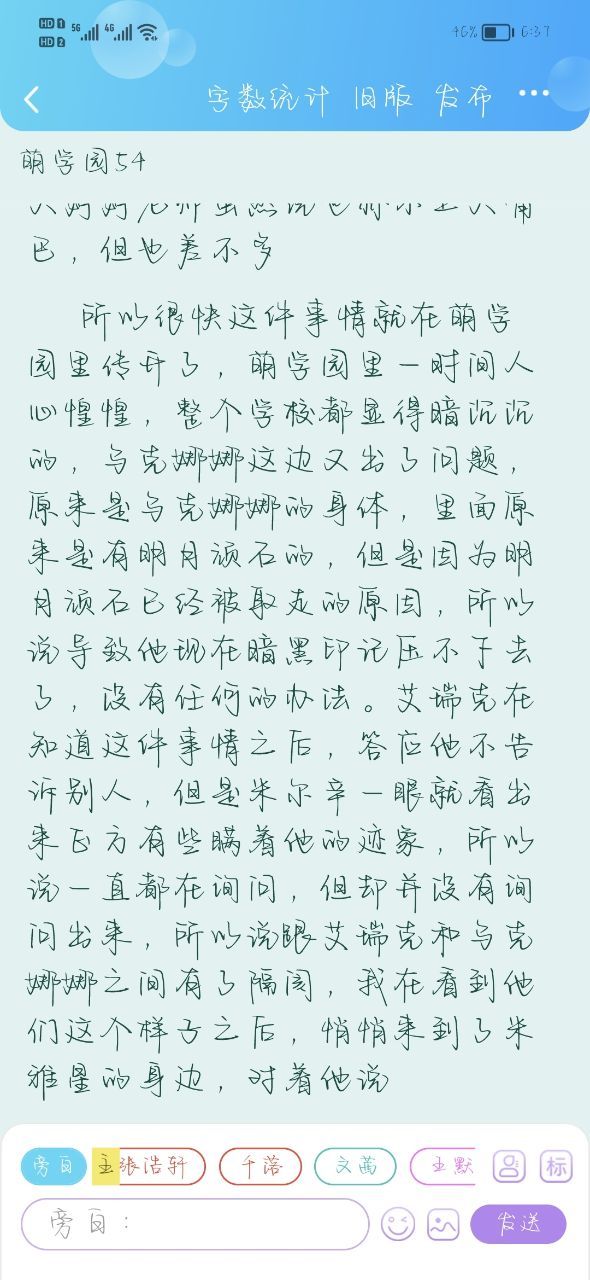 HD 1 5G 4G
HD 2
46% 6:37
字数统计 旧版 发布
萌学园54
巴，但也差不多
所以很快这件事情就在萌学
园里传开了，萌学园里一时间人
心惶惶，整个学校都显得暗沉沉
的，乌克娜娜这边又出了问题，
原来是乌克娜娜的身体，里面原
来是有明月顽石的，但是因为明
月顽石已经被取走的原因，所以
说导致他现在暗黑印记压不下去
了，没有任何的办法。艾瑞克在
知道这件事情之后，答应他不告
诉别人，但是米尔辛一眼就看出
来正方有些瞒着他的迹象，所以
说一直都在询问，但却并没有询
问出来，所以说跟艾瑞克和乌克
娜娜之间有了隔阂，我在看到他
们这个样子之后，悄悄来到了米
雅星的身边，对着他说
旁白 主张浩轩 千落 文茜 王默 标
旁白：
发送